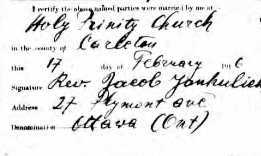 I certify the above named parties were married by me at
Holy Trinity Church
in the county of Carleton
this 17 day of February 1916
Signature Rev. Jacob
Address 27 Plymont ave
Denomination Ottawa (Ont)